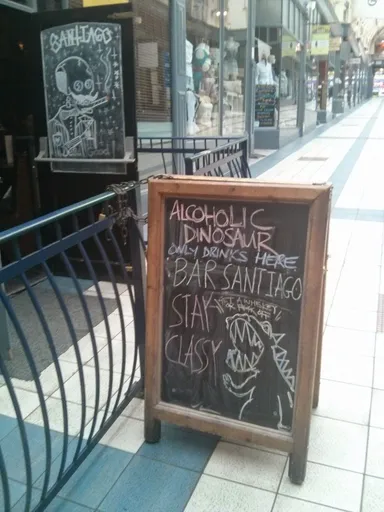 SANTIAGO
ALCOHOLIC
DINOSAUR
ONLY DRINKS HERE
BAR SANTIAGO
STAY
CLASSY